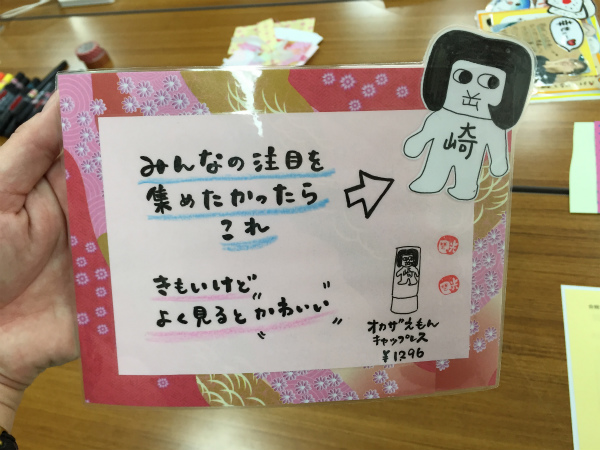 みんなの注目を
集めたかったら
これ
きもいけど
よく見るとかわいい
出
崎
崎
オカザえもん
キャップレス
¥1296